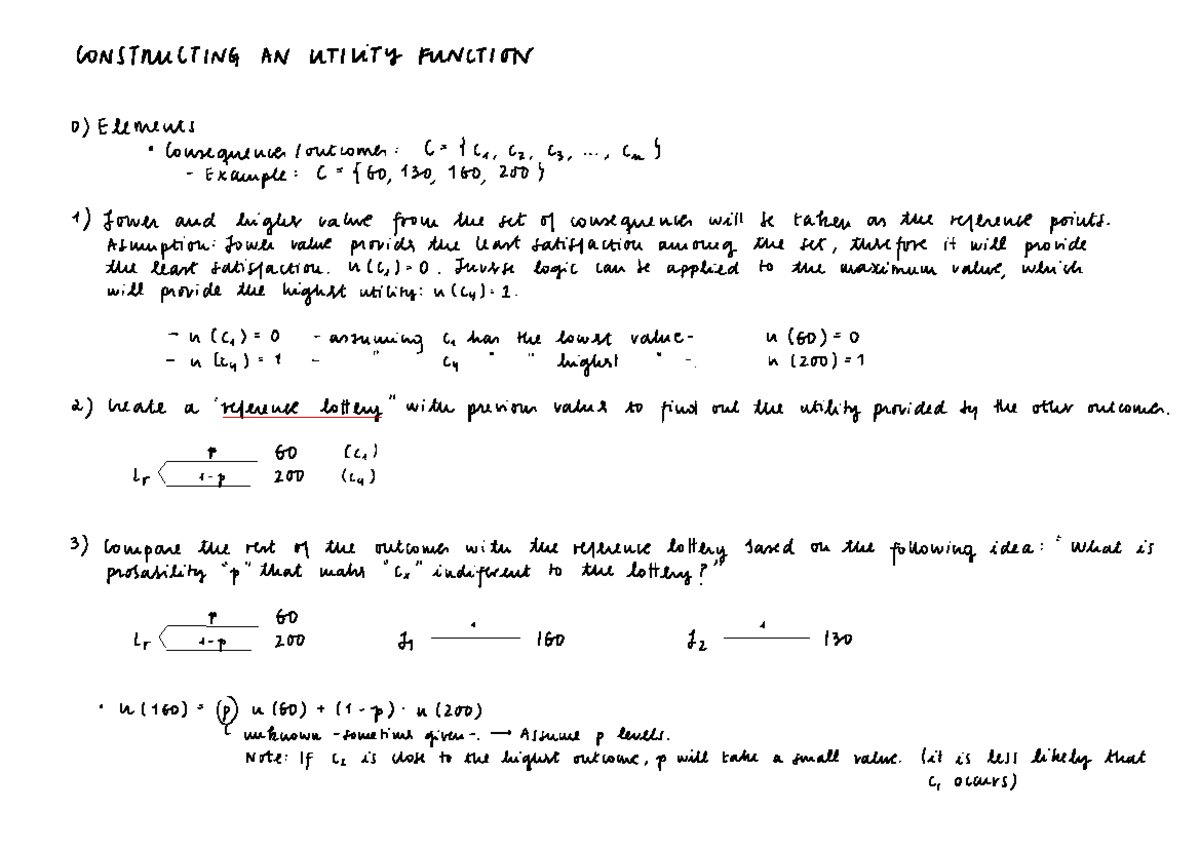 CONSTRUCTING AN UTILITY FUNCTION
0) Elements
• Consequences / outcomes: C = { C₁, C₂, C₃, ..., Cₙ }
- Example: C = { 60, 130, 160, 200 }
1) Lower and higher value from the set of consequences will be taken as the reference points.
Assumption: Lower value provides the least satisfaction among the set, therefore it will provide
the least satisfaction. u(C₁) = 0. Inverse logic can be applied to the maximum value, which
will provide the highest utility: u(C₄) = 1.
- u(C₁) = 0 - assuming C₁ has the lowest value- u(60) = 0
- u(C₄) = 1 - " C₄ " " highest " -. u(200) = 1
2) Create a "reference lottery" with previous values to find out the utility provided by the other outcomes.
p 60 (C₁)
Lr 1-p 200 (C₄)
3) Compare the rest of the outcomes with the reference lottery based on the following idea: "What is
probability "p" that makes "Cₓ" indiferent to the lottery?"
p 60
Lr 1-p 200 L₁ 1 160 L₂ 1 130
• u(160) = p u(60) + (1-p) · u(200)
unknown -sometimes given-. → Assume p levels.
Note: If C₂ is close to the highest outcome, p will take a small value. (it is less likely that
C₁ occurs)